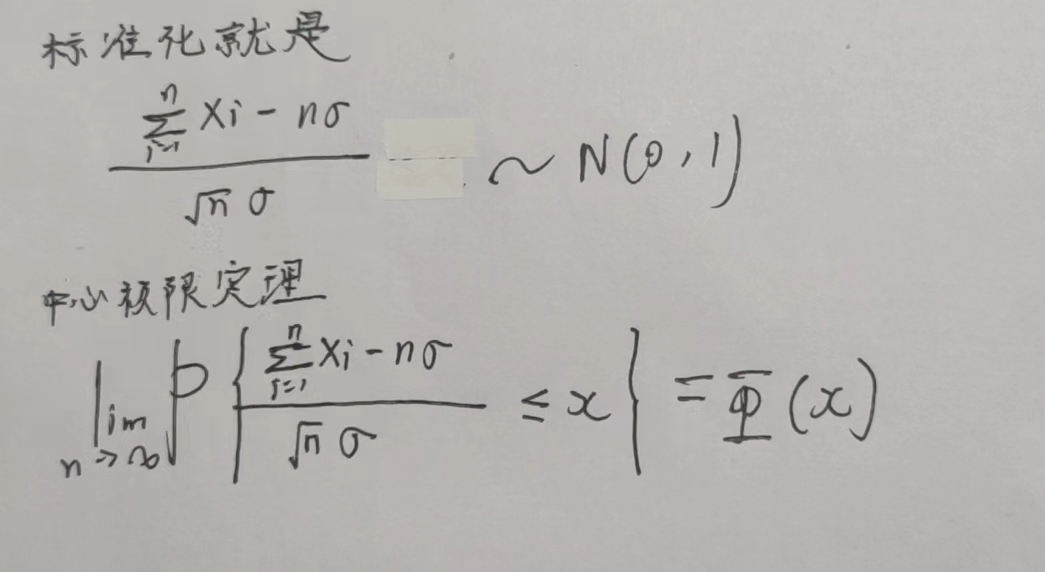 标准化就是
\frac{\sum_{i=1}^{n} Xi - nσ}{\sqrt{n} σ} ~ N(0,1)
中心极限定理
\lim_{n→∞} P \left\{ \frac{\sum_{i=1}^{n} Xi - nσ}{\sqrt{n} σ} ≤ x \right\} = Φ(x)